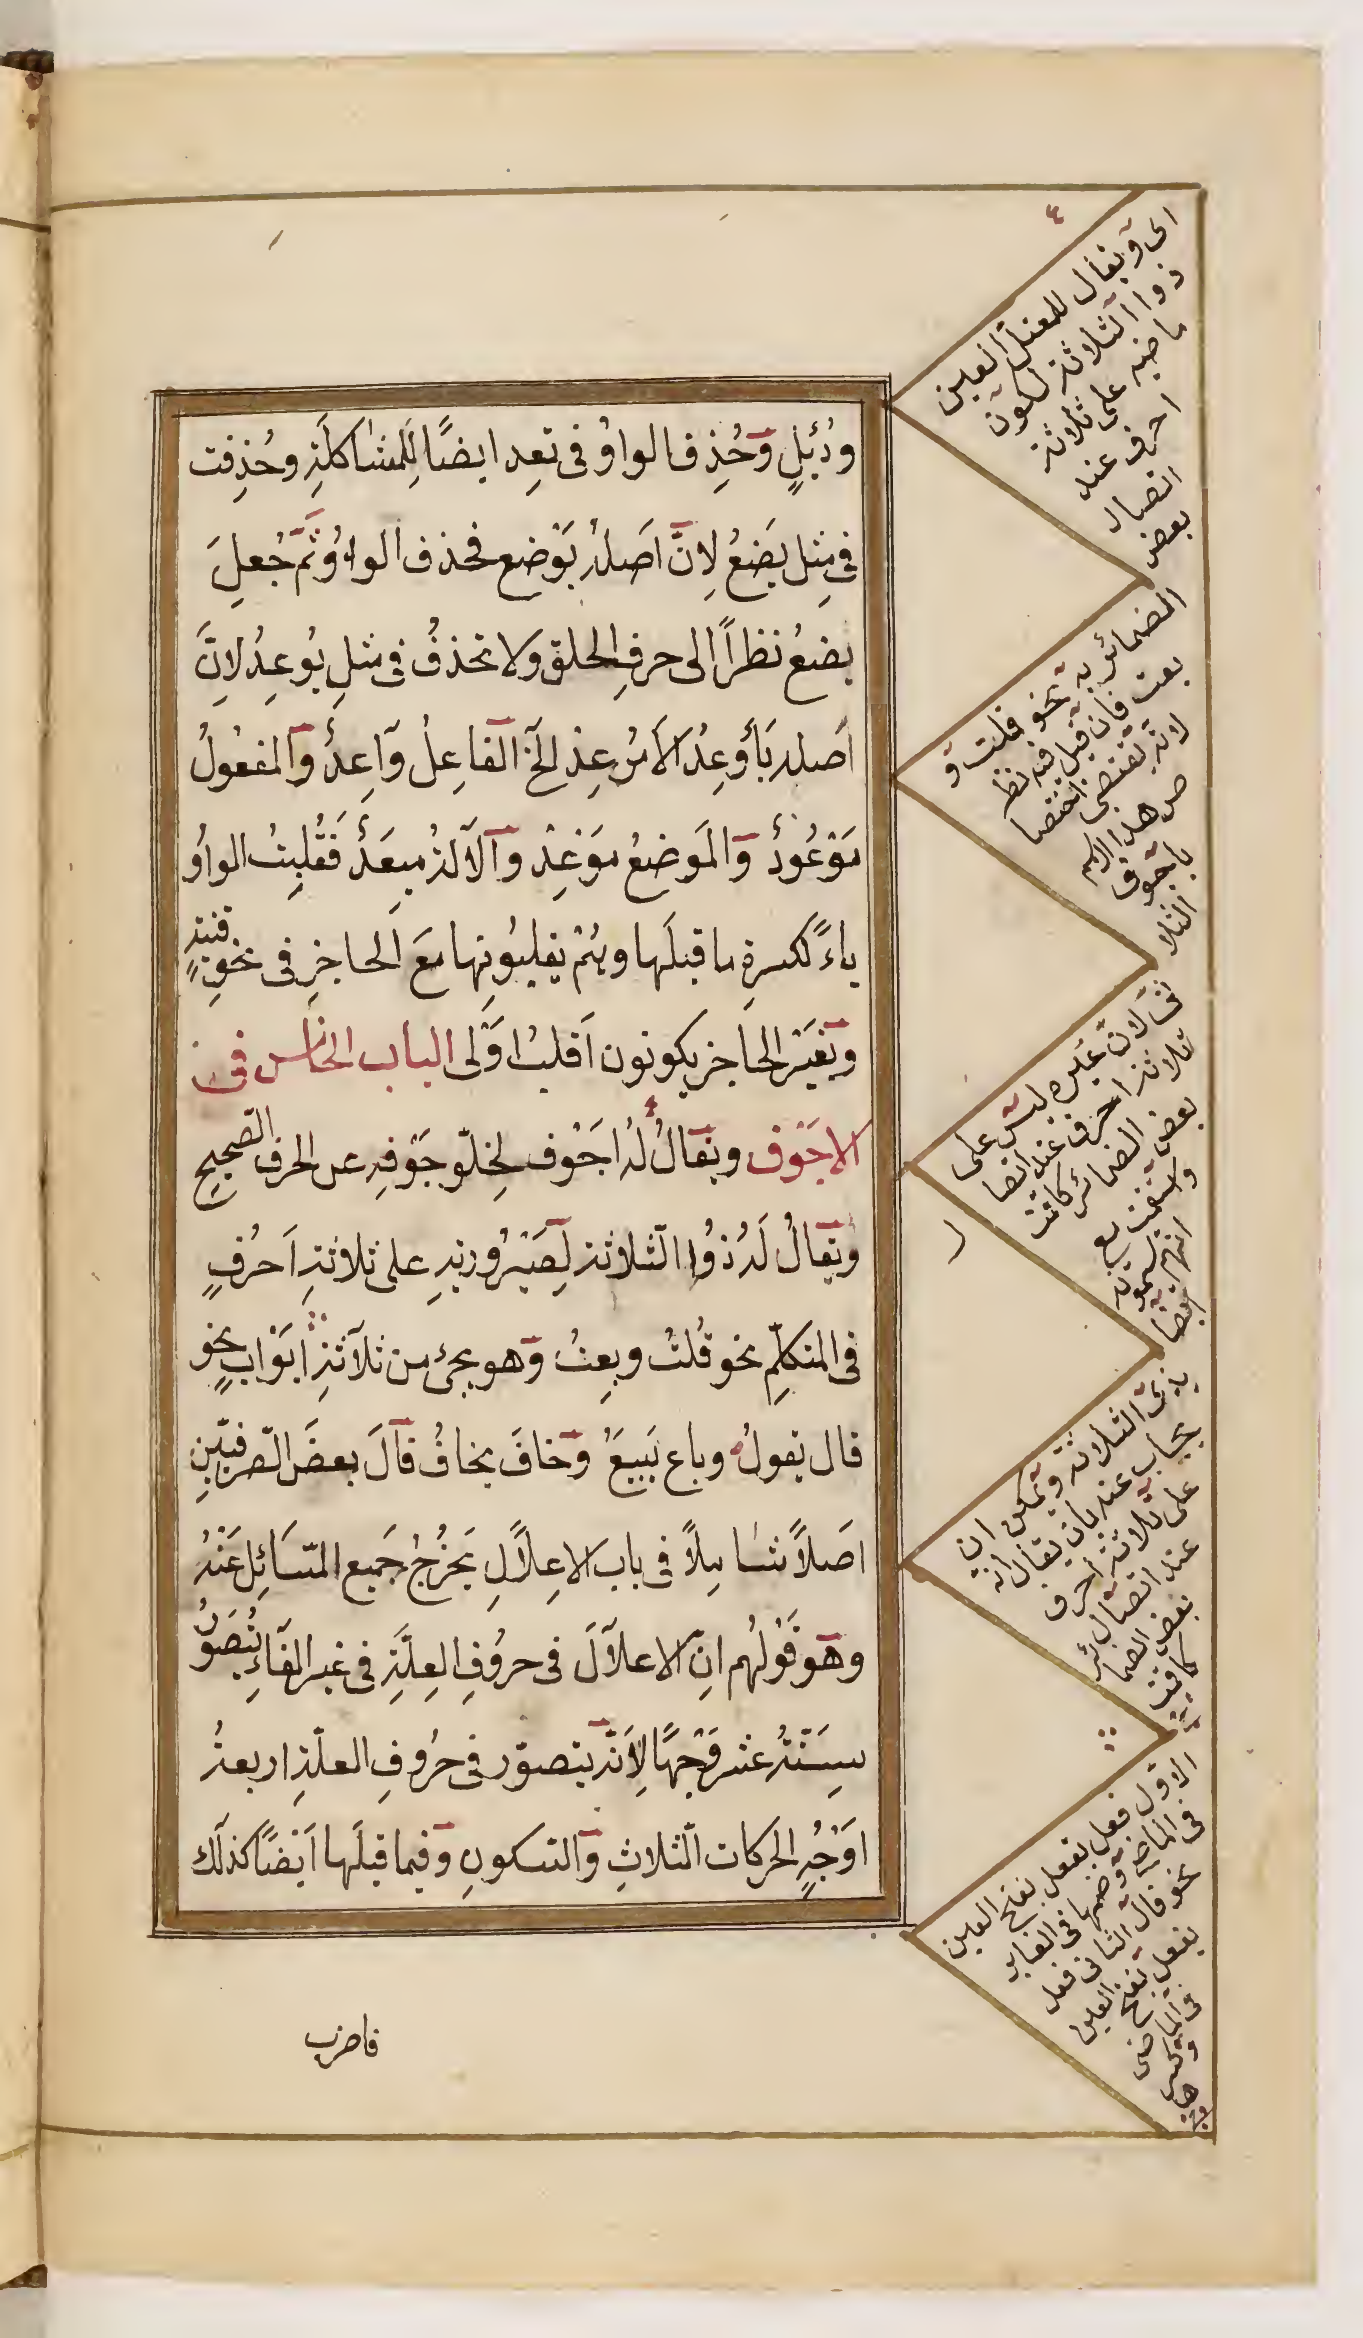 ودُئِلٍ وَحُذِف الواوُ فى تعِد ايضًا لِلمشاكلَةِ وحُذِفت
فى مِثلِ يَضَعُ لِانَّ اَصلَهُ يَوْضِع فحذف الواوُ ثُمَّ جُعلَ
يضعُ نظراً الى حرفِ الحلق ولا تحذفُ فى مثلِ يُوعِدُ لانَّ
اَصله يَأَوعِدُ الاَمرُ عِدْ الخ الفاعِلُ وَاعِدٌ والمفعُولُ
مَوْعُودٌ والمَوضعُ مَوْعِدٌ والآلَة مِيعَدٌ فَقُلِبَتْ الواوُ
ياءً لكسرةِ ما قبلَها وهُمْ يقلِبُونها مَعَ الحاجزِ فى نحوِ قنيةٍ
وبغَيْر الحاجز يكونون اَقلبَ اَوْلى الباب الخامس فى
الاجَوْف ويقَالُ لهُ اجَوْف لِخلوّ جَوْفِهِ عن الحرف الصّحيح
ويقالُ لَهُ ذُوا الثلاثة لِصَيْرُورتِهِ على ثلاثةِ اَحرُفٍ
فى المتكلّمِ نحو قُلتُ وبِعتُ وَهو يجئ من ثلاثةِ ابْوَابٍ نحو
قال يقولُ وباع يَبيعُ وَخافَ يخافُ قالَ بعضَ الصّرفيّينِ
اصَلاً شاملاً فى باب الاِعلالِ يَخْرُجُ جَميع المسَائِل عَنْهُ
وهَو قَوْلُهم انّ الاعلالَ فى حروُفِ العِلّةِ فى غير الفاءِ يُتَصَوَّرُ
سِتّةُ عَشر وَجْهًا لِاَنّهُ يتصوّر فى حرُوفِ العلّةِ اربعةُ
اوَجُهٍ الحركات الثلاثِ والسّكونِ وَفيما قبلَها اَيضًا كذلك
فاضرب
اى ويقال للمعتل العين
ذوا الثلاثة لكون
ماضيه على ثلاثة
احرف عند
اتصال
بعض
الضمائر به نحو قلت و
بعت فان قيل فيه نظر
لانه يقتضى اختصا
ص هذا الاسم
باجوف
الثلا
ثى لان غيره ليس على
ثلاثة احرف عند اتصا
ل
بعض الضمائر كاقمت
واستقمت مع
انهم يسمونه
ايضا
بذى الثلاثة ويمكن ان
يجاب عنه بان يقال انه
على ثلاثة احرف
عند اتصال
بعض الضمائر
كاقمت
الاول فعل يفعل بفتح العين
فى الماضى وضمها فى الغابر
نحو قال الثانى فعل
يفعل بفتح العين
فى الماضى
وكسر
ها